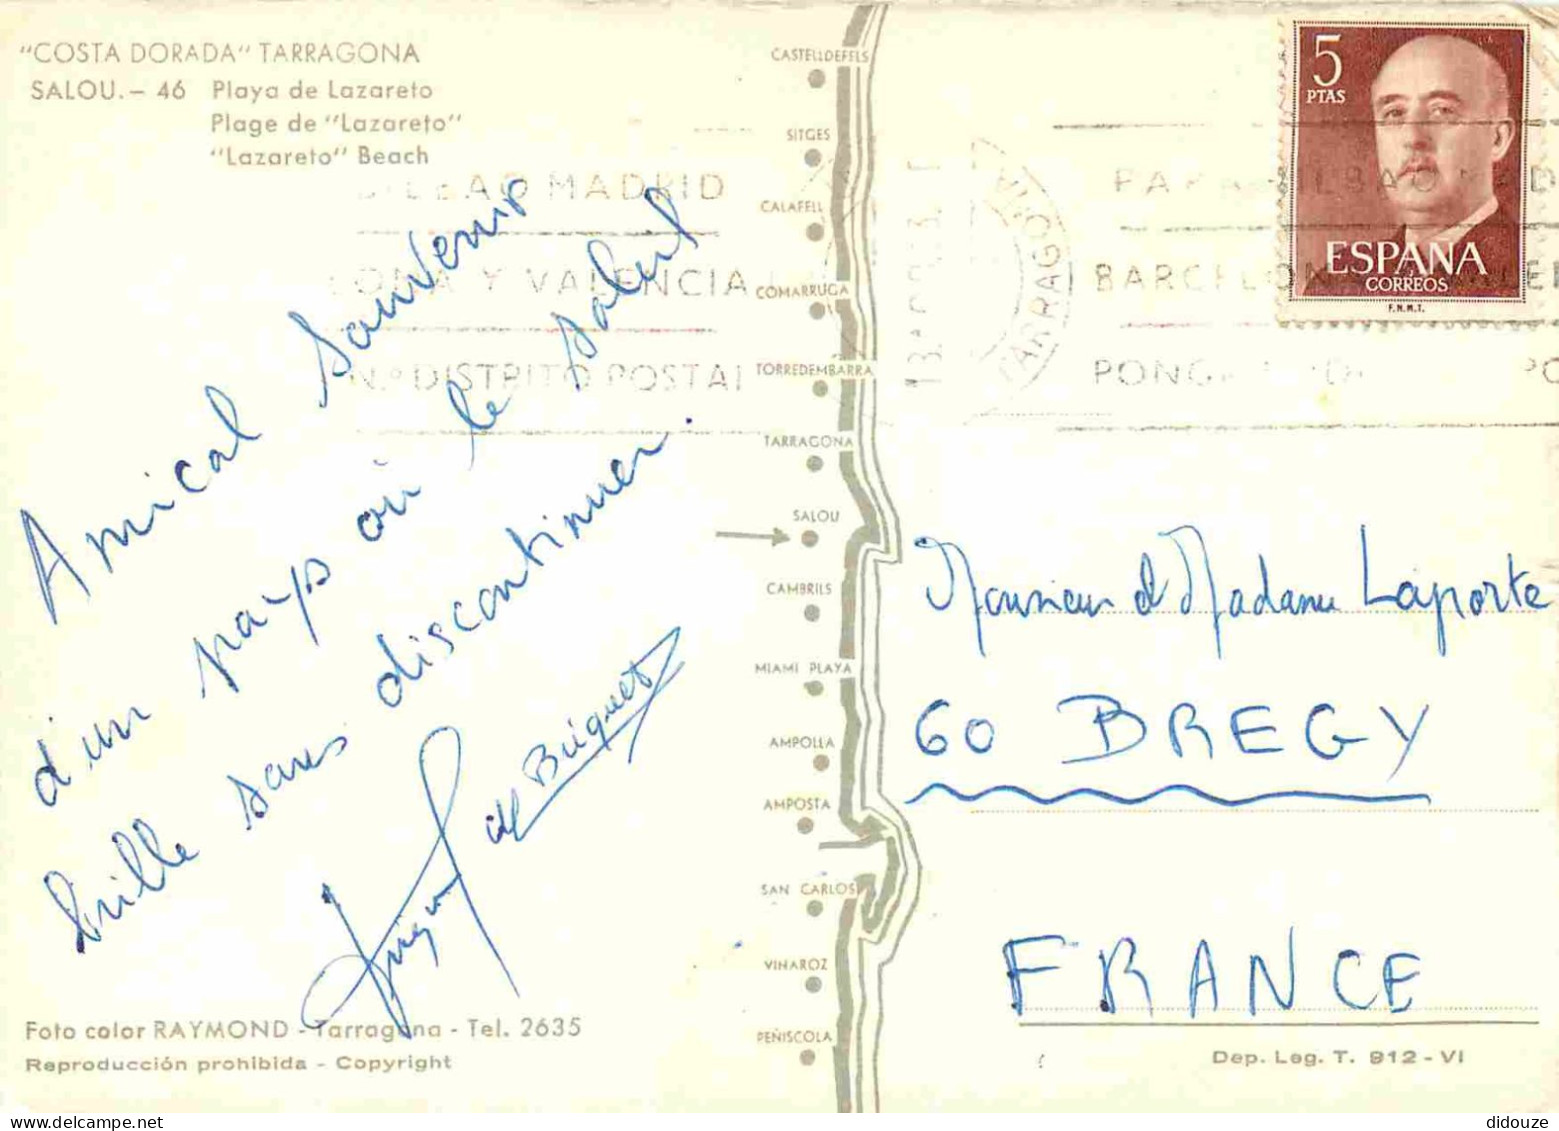 "COSTA DORADA" TARRAGONA
SALOU. - 46 Playa de Lazareto
Plage de "Lazareto"
"Lazareto" Beach
Amical souvenir
d'un pays où le soleil
brille sans discontinuer.
Briquet
Foto color RAYMOND - Tarragona - Tel. 2635
Reproducción prohibida - Copyright
CASTELLDEFELS
SITGES
CALAFELL
COMARRUGA
TORREDEMBARRA
TARRAGONA
SALOU
CAMBRILS
MIAMI PLAYA
AMPOLLA
AMPOSTA
SAN CARLOS
VINAROZ
PEÑISCOLA
BILBAO MADRID
LONA Y VALENCIA
N.º DISTRITO POSTAL
TARRAGONA
PARA BILBAO MAD
BARCELONA
PONGA
5
PTAS
ESPAÑA
CORREOS
F.N.M.T.
Monsieur et Madame Laporte
60 BREGY
FRANCE
Dep. Leg. T. 912 - VI
didouze